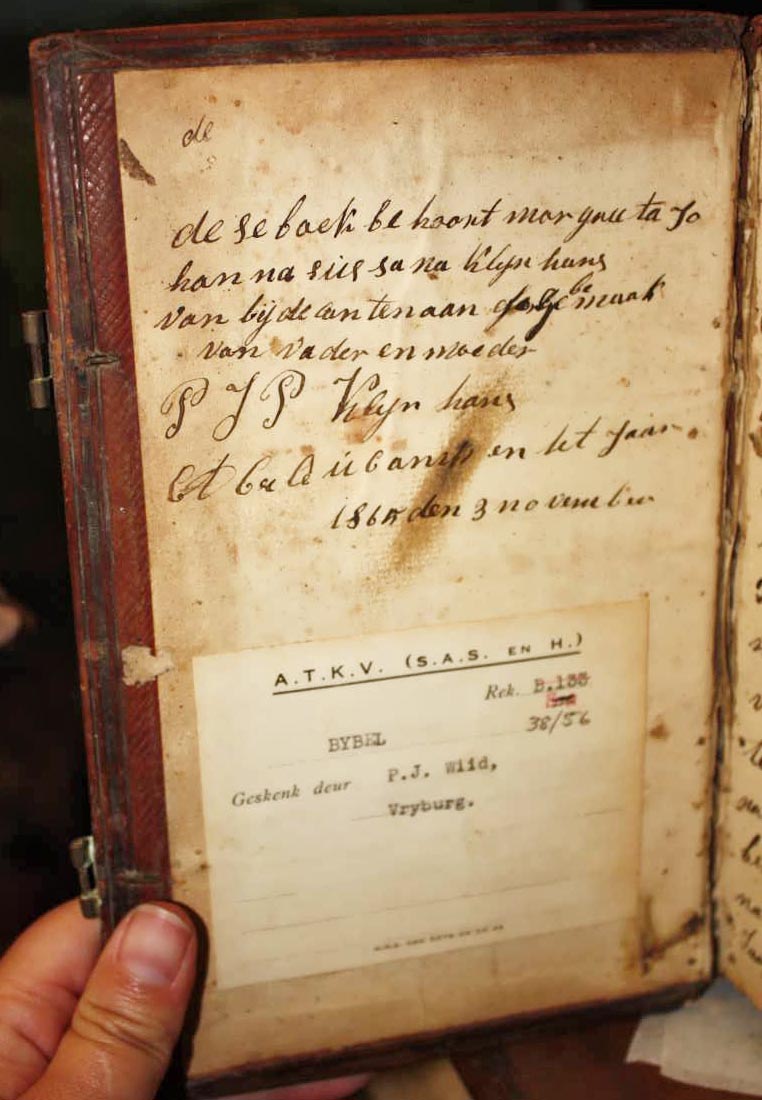 de
de se boek be hoort mar gree ta Jo
han na sus sa na Klyn hans
van bij de an ten aan ge maak
van va der en moe der
P J P Klyn hans
en het Jaar
186 den 3 no vem ber
A.T.K.V. (S.A.S. EN H.)
Rek. B.133
38/56
BYBEL
Geskenk deur P.J. Wiid,
Vryburg.